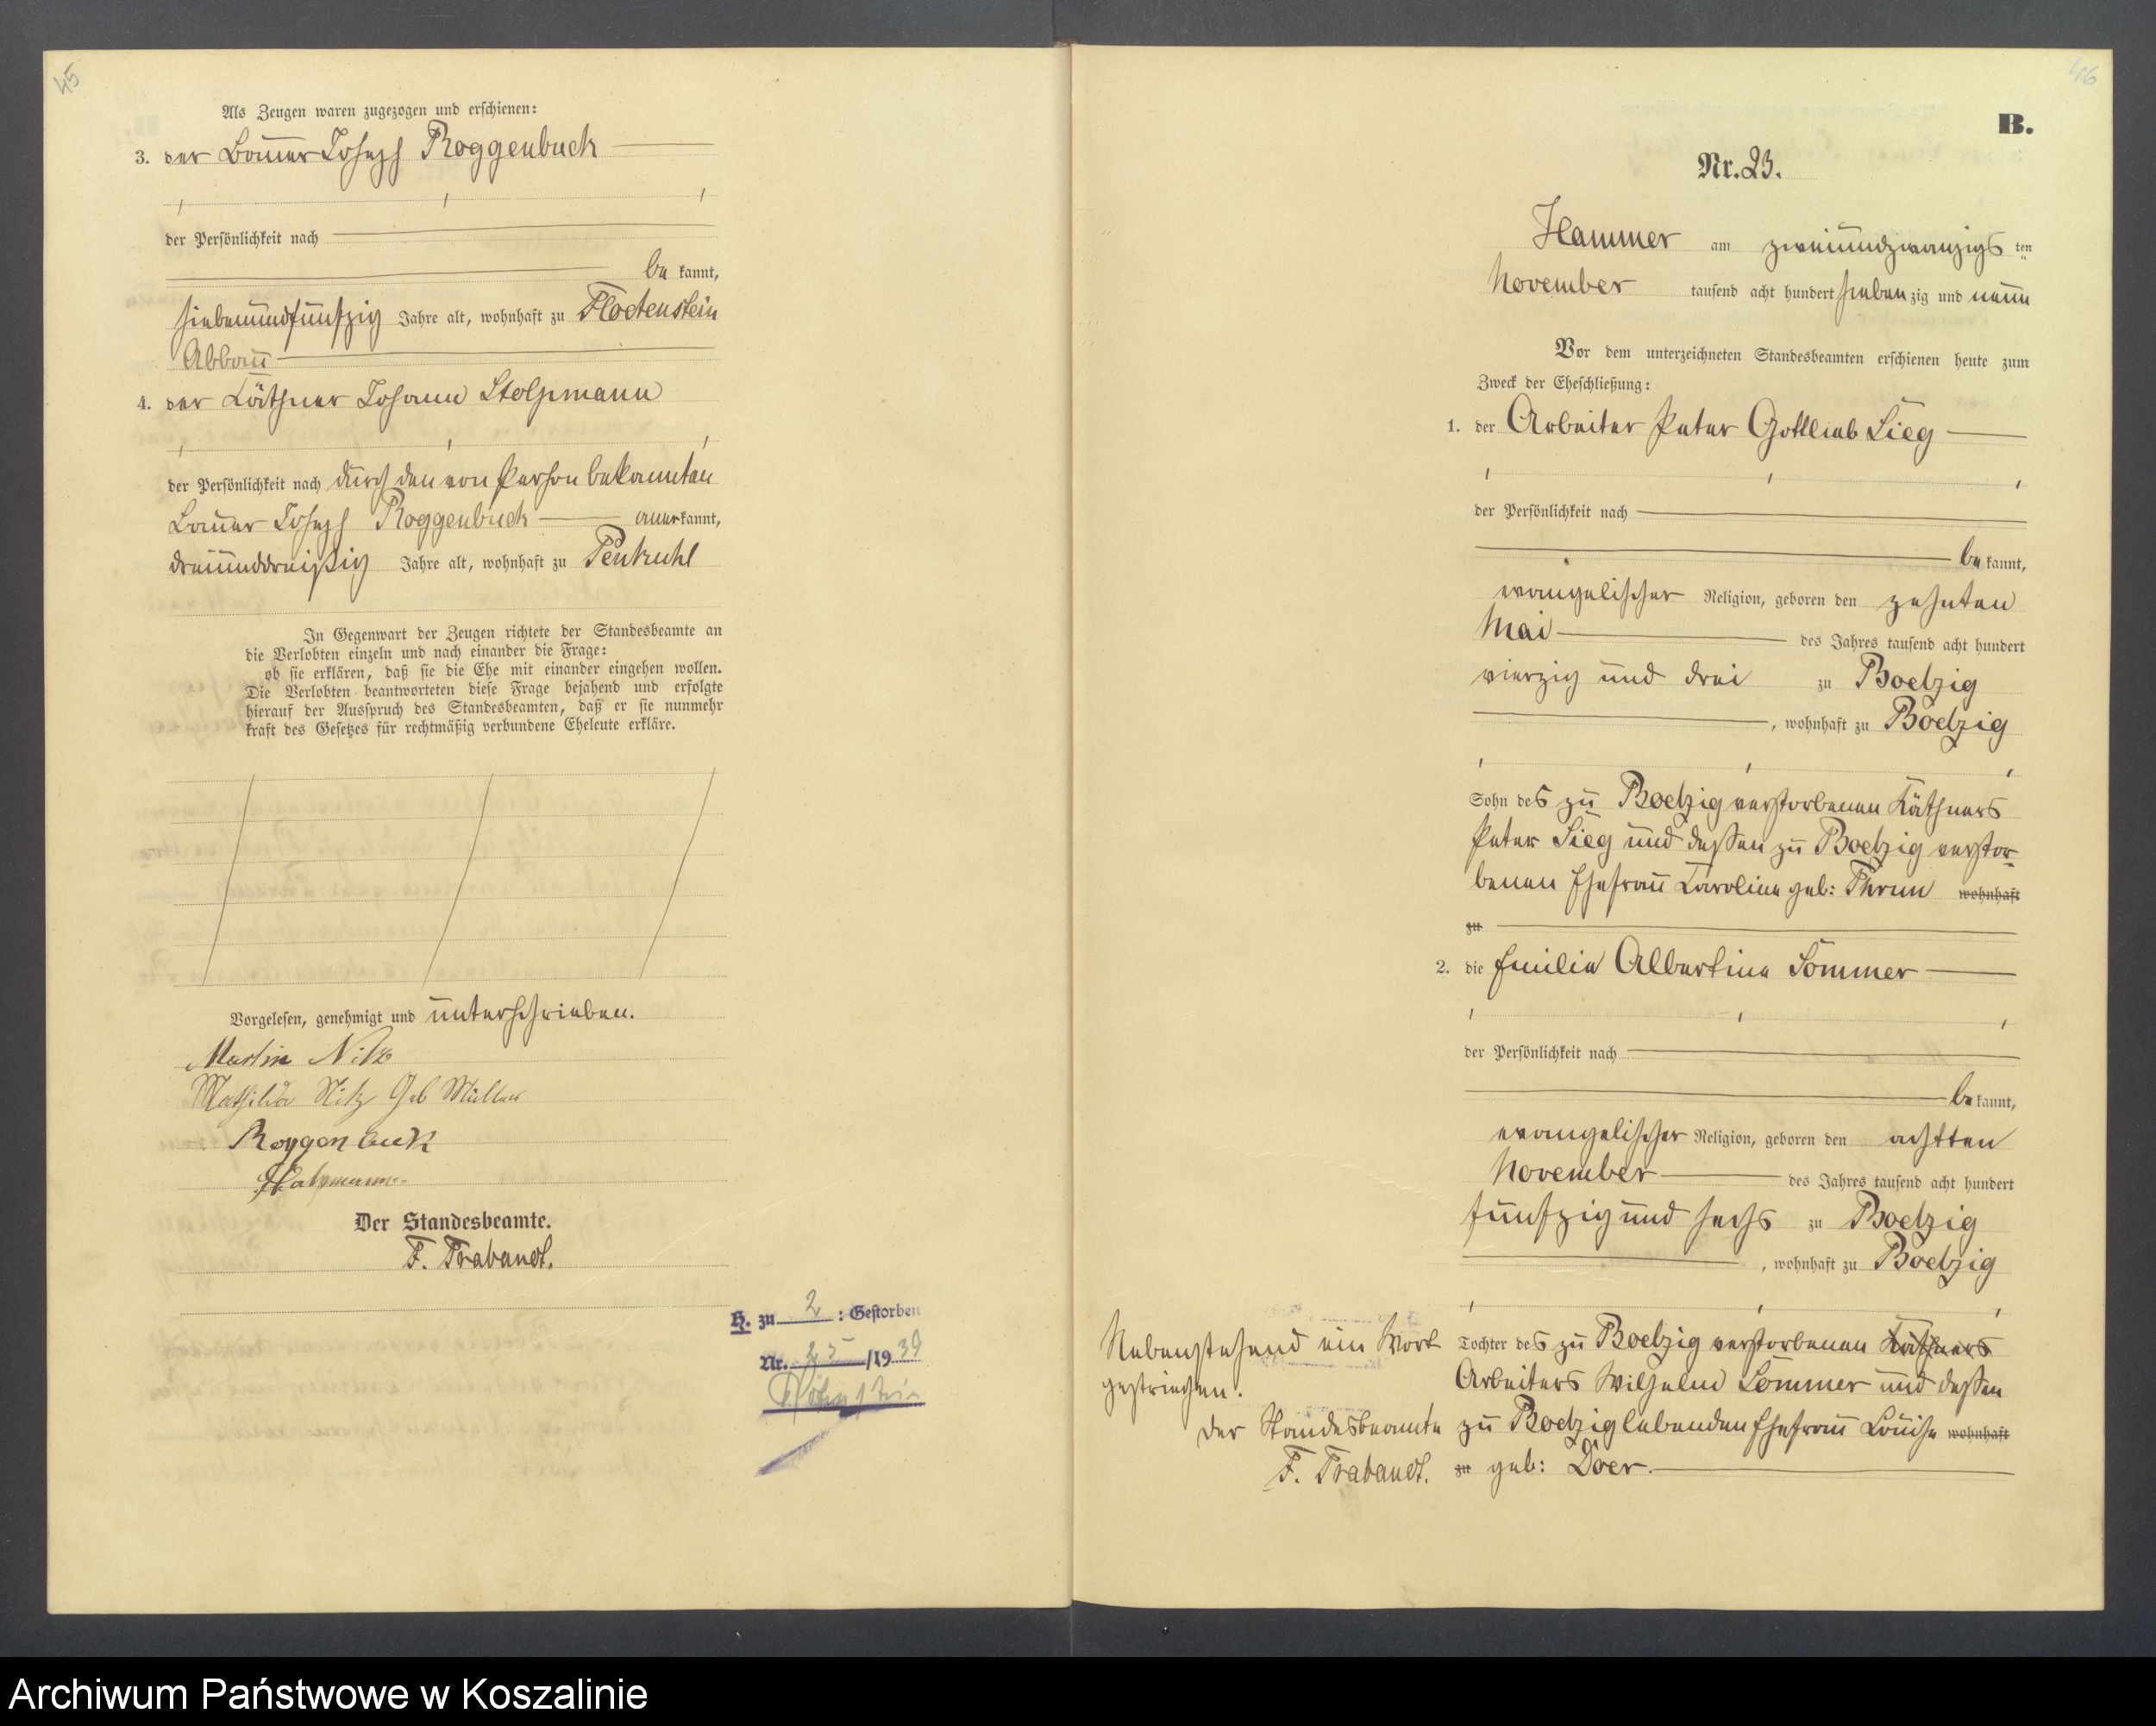 45
Als Zeugen waren zugezogen und erschienen:
3. der Bauer Joseph Roggenbuck
der Persönlichkeit nach
be kannt,
siebenundfünfzig Jahre alt, wohnhaft zu Floetenstein
Abbau
4. der Käthner Johann Stolpmann
der Persönlichkeit nach durch den von Person bekannten
Bauer Joseph Roggenbuck anerkannt,
dreiunddreißig Jahre alt, wohnhaft zu Penkuhl
In Gegenwart der Zeugen richtete der Standesbeamte an
die Verlobten einzeln und nach einander die Frage:
ob sie erklären, daß sie die Ehe mit einander eingehen wollen.
Die Verlobten beantworteten diese Frage bejahend und erfolgte
hierauf der Ausspruch des Standesbeamten, daß er sie nunmehr
kraft des Gesetzes für rechtmäßig verbundene Eheleute erkläre.
Vorgelesen, genehmigt und unterschrieben.
Martin Nitz
Mathilde Nitz Geb Müller
Roggenbuck
Stolpmann
Der Standesbeamte.
F. Trabandt.
H. zu 2 : Gestorben
Nr. 25 /1939
46
B.
Nr. 23.
Hammer am zweiundzwanzigs ten
November tausend acht hundert sieben zig und neun
Vor dem unterzeichneten Standesbeamten erschienen heute zum
Zweck der Eheschließung:
1. der Arbeiter Peter Gottlieb Sieg
der Persönlichkeit nach
be kannt,
evangelischer Religion, geboren den zehnten
Mai des Jahres tausend acht hundert
vierzig und drei zu Boelzig
, wohnhaft zu Boelzig
Sohn des zu Boelzig verstorbenen Käthners
Peter Sieg und dessen zu Boelzig verstor-
benen Ehefrau Caroline geb: Thrun wohnhaft
zu
2. die Emilie Albertine Sommer
der Persönlichkeit nach
be kannt,
evangelischer Religion, geboren den achtten
November des Jahres tausend acht hundert
fünfzig und sechs zu Boelzig
, wohnhaft zu Boelzig
Tochter des zu Boelzig verstorbenen Käthners
Arbeiters Wilhelm Sommer und dessen
zu Boelzig lebenden Ehefrau Louise wohnhaft
zu geb: Doer.
Nebenstehend ein Wort
gestrichen.
Der Standesbeamte
F. Trabandt.
Archiwum Państwowe w Koszalinie